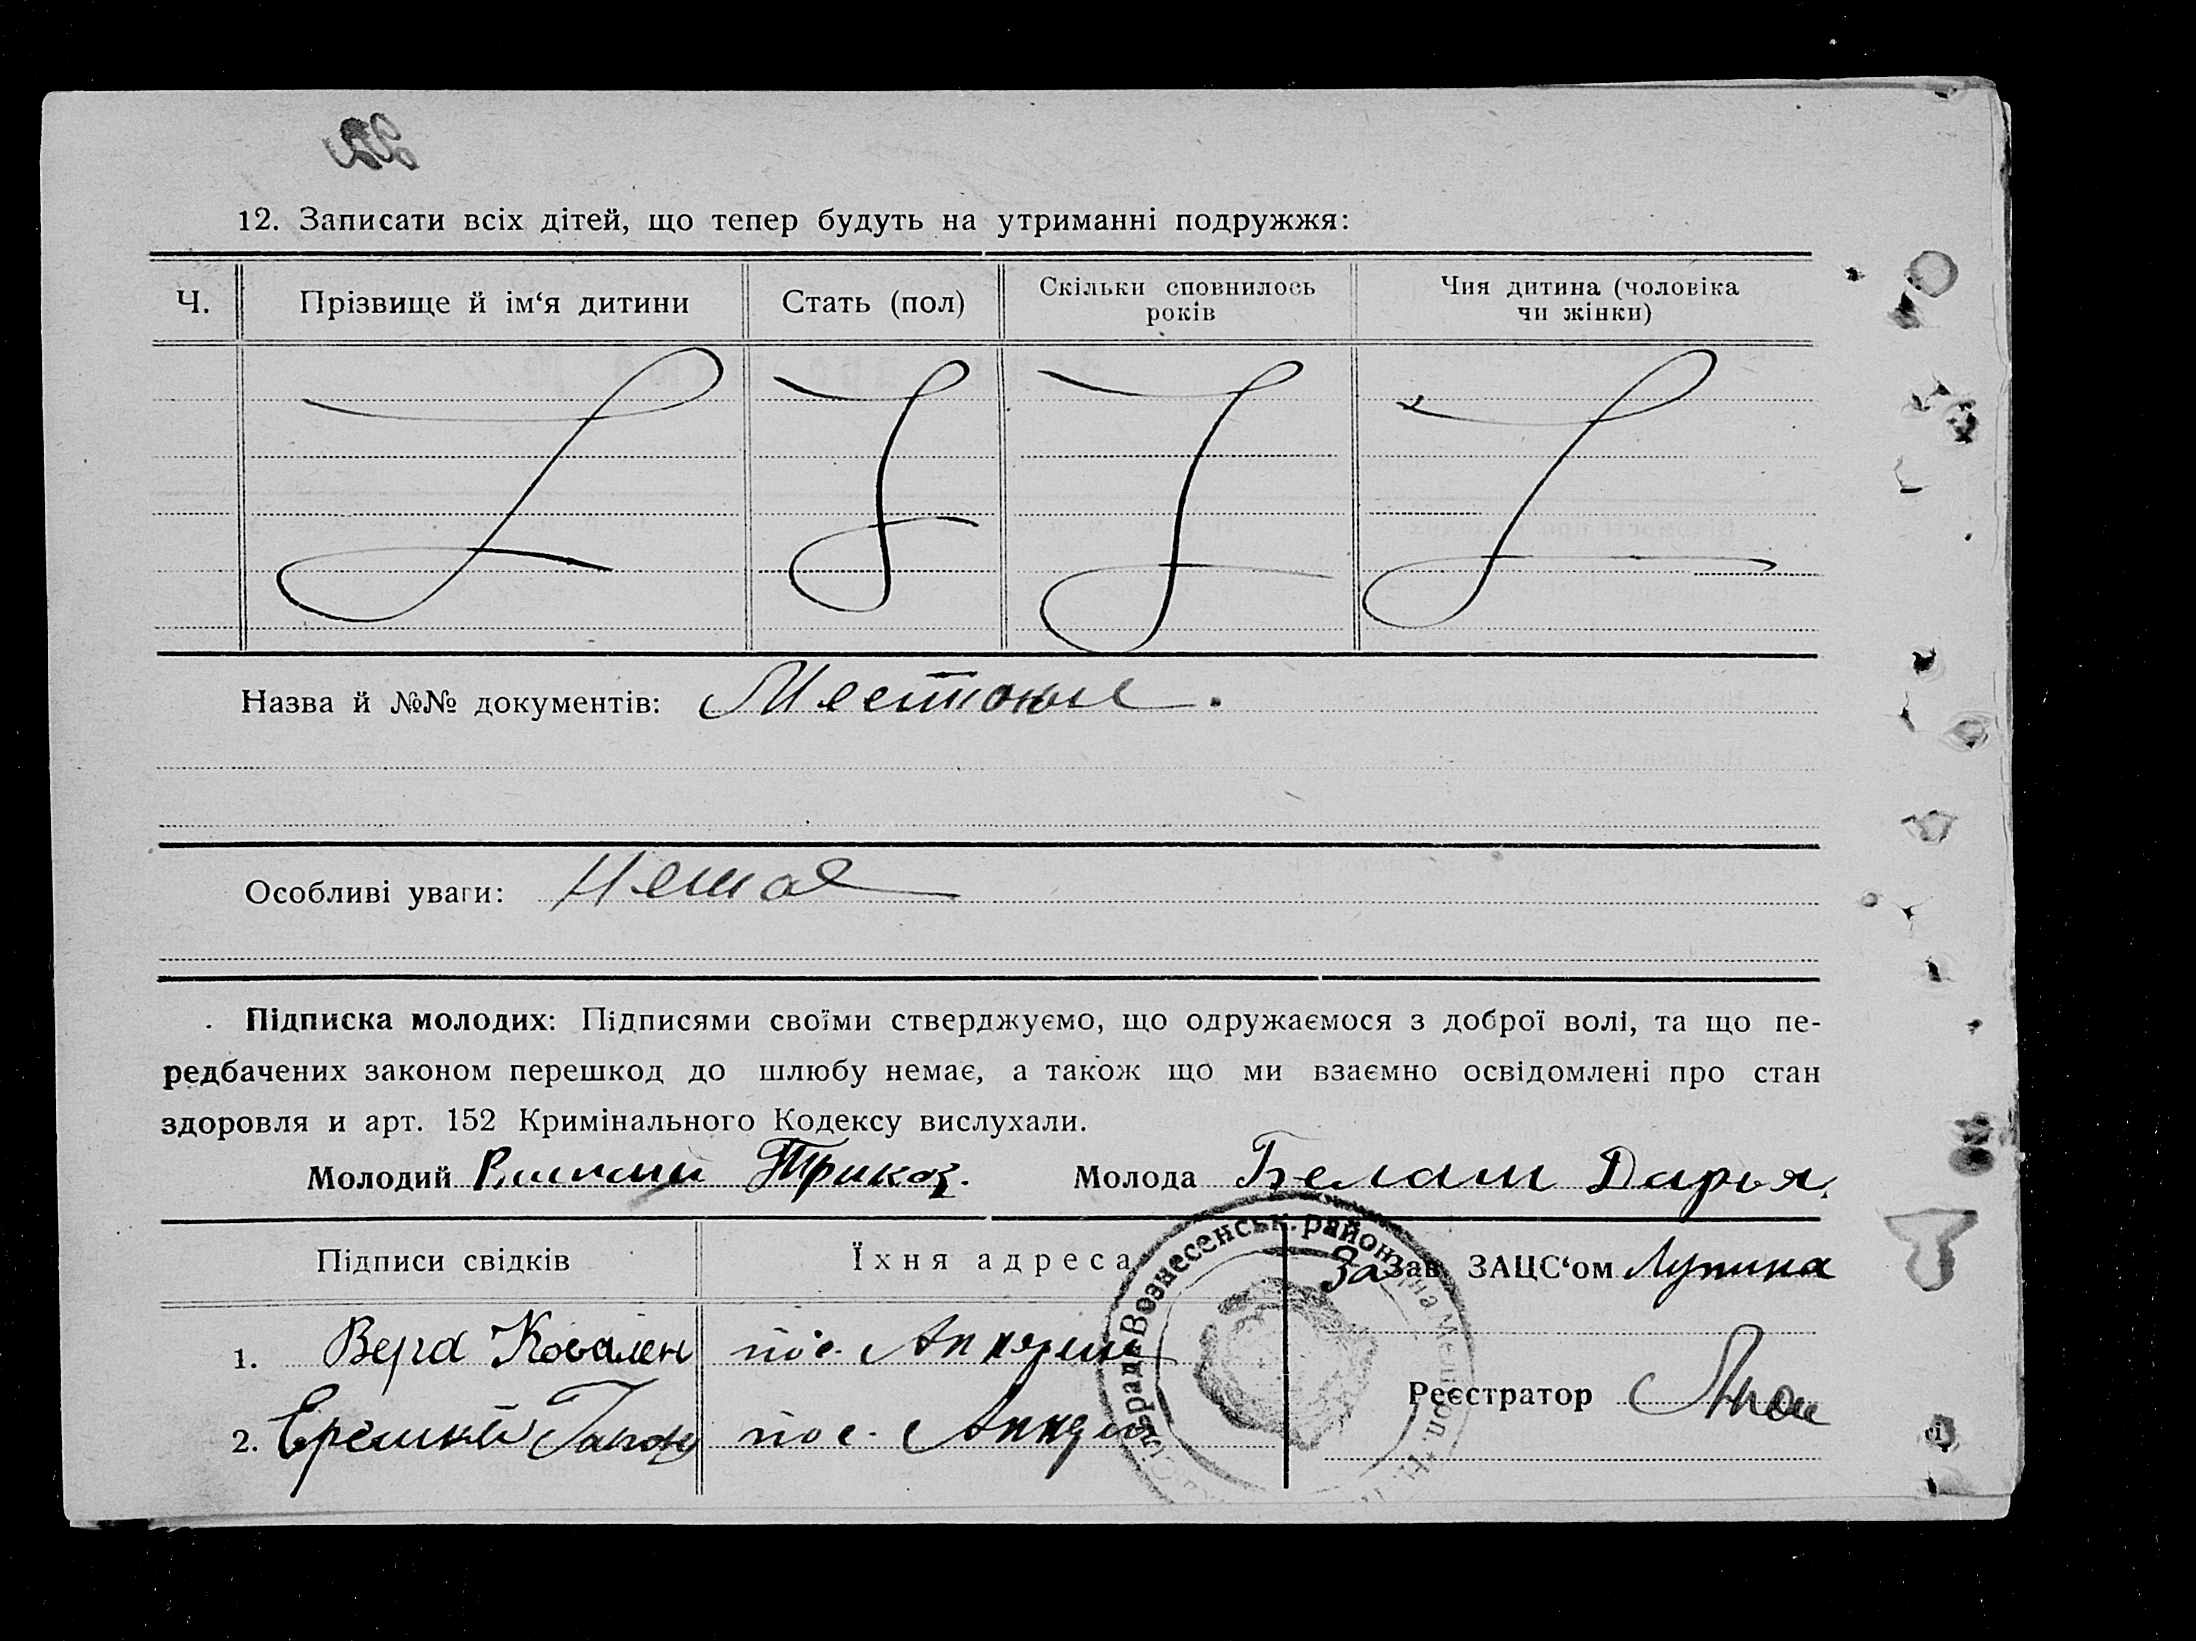 12. Записати всіх дітей, що тепер будуть на утриманні подружжя:
Ч. Прізвище й ім‘я дитини Стать (пол) Скільки сповнилось років Чия дитина (чоловіка чи жінки)
Назва й №№ документів: Местные.
Особливі уваги: Немає
Підписка молодих: Підписями своїми стверджуємо, що одружаємося з доброї волі, та що пе-
редбачених законом перешкод до шлюбу немає, а також що ми взаємно освідомлені про стан
здоровля и арт. 152 Кримінального Кодексу вислухали.
Молодий Трикоз. Молода Белаш Дарья
Підписи свідків Їхня адреса За Зав. ЗАЦС‘ом Лупина
1. Вера Ковален пос.
2. пос.
Реєстратор
Вознесенськ. район